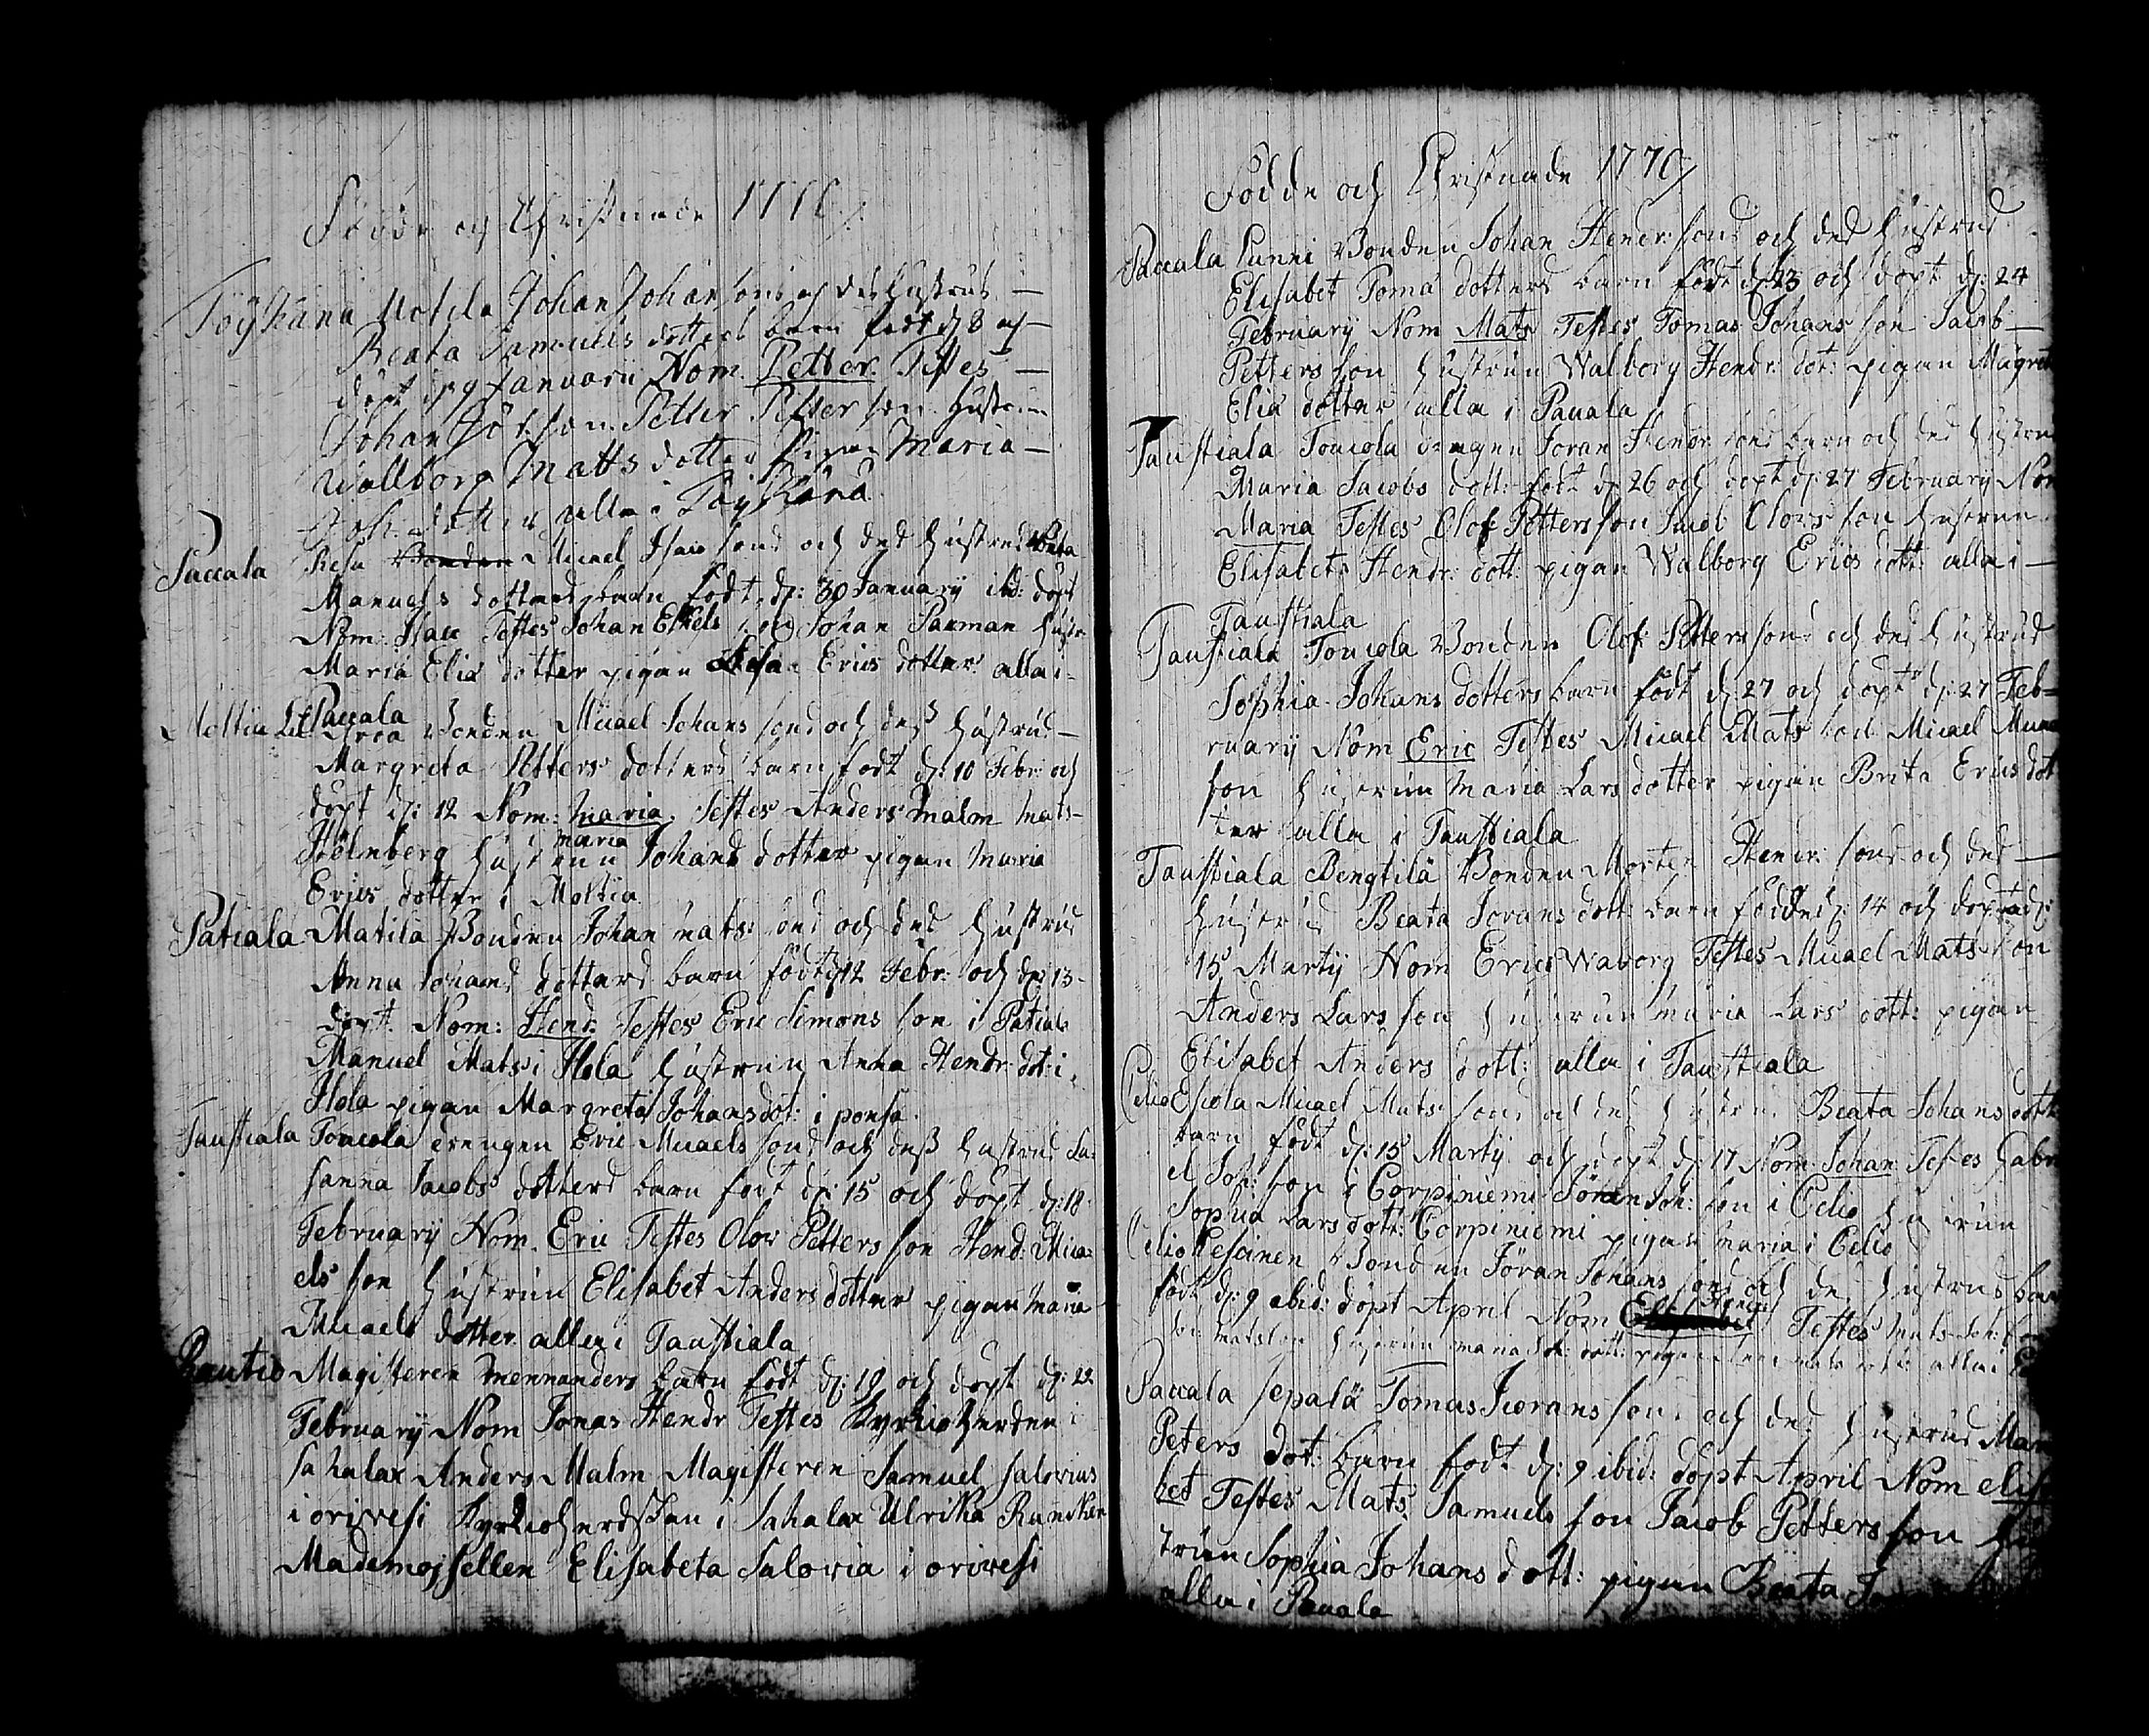 Födde och Christnade 1770/.
Töÿstänä Matila Johan Johans sons och des hustrus —
Beata Samuels dotters barn födt d: 8 och —
döpt d: 9 Januarii Nom. Petter. Testes —
Johan son Petter Petter son hustrun
Wallborg Matts dotter Pigan Maria —
dotter alla i
Paccala Resu Bonden Micael Isacs sons och des hustrus Beata
Manuels dotters barn födt d: 30 January ibd: döpt
Nom: Isac Testes Johan Eskels son Johan Parman hustr
Maria Eliæ dotter pigan Lisa Erics dotter alla i
Paccala
Moltia Bonden Micael Johans sons och des hustrus —
Margreta Petters dotters barn födt d: 10 Febr: och
döpt d: 12 Nom: Maria. Testes Anders Malm Mats-
Holmberg hustrun maria Johans dotter pigan Maria
Erics dotter i Moltia
Patiala Matila Bonden Johan Mats: sons och des hustrus
Anna Johans dotters barn födt d: 12 Febr: och d: 13-
döpt. Nom: Hend: Testes Eric Simons son i Patiala
Manuel Mats i Ilola hustrun Anna Hendr: dot: i
Ilola pigan Margreta Johans dot: i ponsa.
Taustiala Toucola drengen Eric Micaels sons och dess hustrus Su-
sanna Jacobs dotters barn födt d: 15 och döpt d: 18
February Nom. Eric Testes Olov Petters son Hend: Mica-
els son hustrun Elisabet Anders dotter pigan Maria
Micaels dotter alla i Taustiala
Rautio Magisteren Mennanders barn födt d: 19 och döpt d: 22
February Nom Jonas Hendr Testes Kyrkioherden i
Sahalax Anders Malm Magisteren Samuel Salovius
i orivesi Kyrkioherdskan i Sahalax Ulrika
Mademojsellen Elisabeta Salovia i orivesi
Födde och Christnade 1770/
Paccala Punni Bonden Johan Hendr: sons och des hustrus
Elisabet Toma dotters barn födt d: 23 och döpt d: 24
February Nom Mats Testes Tomas Johans son Jacob —
Petters son hustrun Walborg Hendr: dot: pigan Magret
Eliæ dotter alla i Pacala
Taustiala Toucola drengen Joran Hendr: sons barn och des hustru
Maria Jacobs dott: födt d: 26 och döpt d: 27 February Nom
Maria Testes Olof Petters son Jacob Olovs son hustrun
Elisabeta Hendr: dott: pigan Walborg Erics dott: alla i —
Taustiala
Taustiala Toucola Bonden Olof Petters sons och des hustrus
Sophia Johans dotters barn födt d: 27 och döpt d: 27 Feb-
ruary Nom Eric Testes Micael Mats son Micael
son hustrun Maria Lars dotter pigan Brita Erics dot
ter alla i Taustiala
Taustiala Bengtilä Bonden Morten Hendr: sons och des —
hustrus Beata Jorans dott: barn födde d: 14 och döpta d:
15 Martij Nom Eric Waborg Testes Micael Mats son
Anders Lars son hustrun Maria Lars dott: pigan
Elisabet Anders dott: alla i Taustiala
Celio Micael Mats: sons och des hustru Beata Johans dott:
barn födt d: 15 Martij och döpt d: 17 Nom Johan Testes Gabri
el Joh: son i Corpiniemi Jöran Joh: son i Celio hustrun
Sophia Lars dott: Corpiniemi pigan Maria i Celio
Celio Pescinen Bonden Jöran Johans sons och des hustrus bar
födt d: 9 ibid: döpt April Nom Testes Mats Joh:
Matsson hustrun maria Joh: dott: pigan alla i
Paccala sepalä Tomas Jorans son och des hustrus Mar
Peters dot: barn födt d: 9 ibid: döpt April Nom elisa
bet Testes Mats: Samuels son Jacob Petters son hus
trun Sophia Johans dott: pigan Beata
alla i Pacala